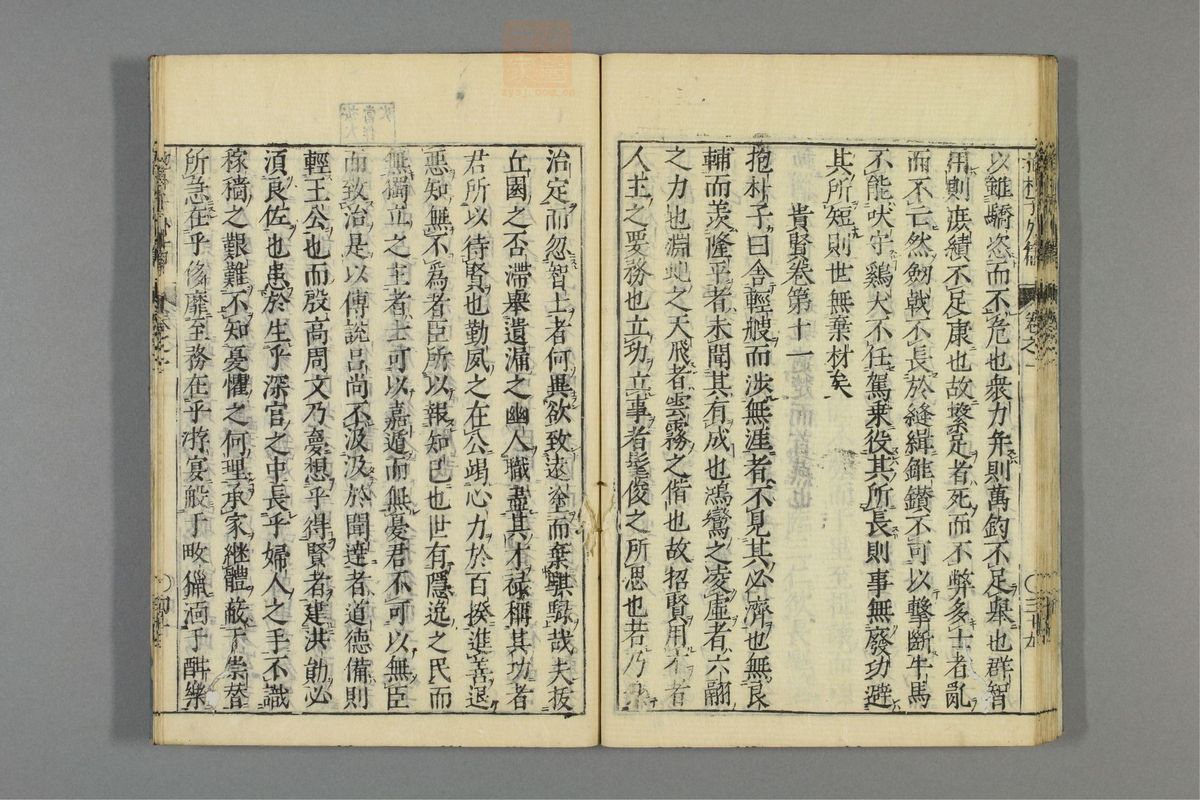 以雖驕恣而不危也衆力并則萬鈞不足舉也群智
用則庶績不足康也故繁足者死而不弊多士者亂
而不亡然劒戟不長於縫緝錐鑚不可以擊斷牛馬
不能吠守鷄犬不任駕乗役其所長則事無廢功避
其所短則世無棄材矣
貴賢卷第十一
抱朴子曰舎輕艘而涉無涯者不見其必濟也無良
輔而羨隆平者未聞其有成也鴻鸞之凌虛者六翮
之力也淵虵之天飛者雲霧之偕也故招賢用才者
人主之要務也立功立事者髦俊之所思也若乃
治定而忽智士者何異欲致遠塗而棄騏驥哉夫拔
丘園之否滯舉遺漏之幽人職盡其才祿稱其功者
君所以待賢也勤夙之在公竭心力於百揆進善退
惡知無不爲者臣所以報知已也世有隱逸之民而
無獨立之主者士可以嘉遁而無憂君不可以無臣
而致治是以傅説吕尚不汲汲於聞達者道德備則
輕王公也而殷高周文乃夢想乎得賢者建洪勛必
湏良佐也患於生乎深宫之中長乎婦人之手不識
稼穡之艱難不知憂懼之何理承家継體蔽于崇替
所急在乎侈靡至務在乎游宴般于畋獵湎于酣樂